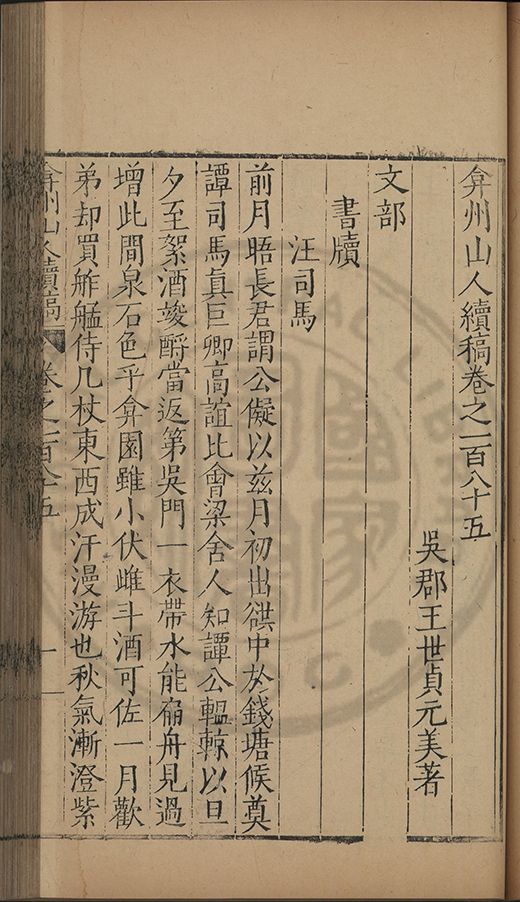 弇州山人續稿卷之一百八十五
吳郡王世貞元美著
文部
書牘
汪司馬
前月晤長君謂公儗以兹月初出㵎中於錢塘候奠
譚司馬眞巨卿高誼比會梁舍人知譚公輼輬以旦
夕至絮酒竣酹當返第吳門一衣帶水能扁舟見過
增此間泉石色乎弇園雖小伏雌斗酒可佐一月歡
弟却買舴艋侍几杖東西成汗漫游也秋氣漸澄紫
弇州山人續稿 卷之一百八十五 一